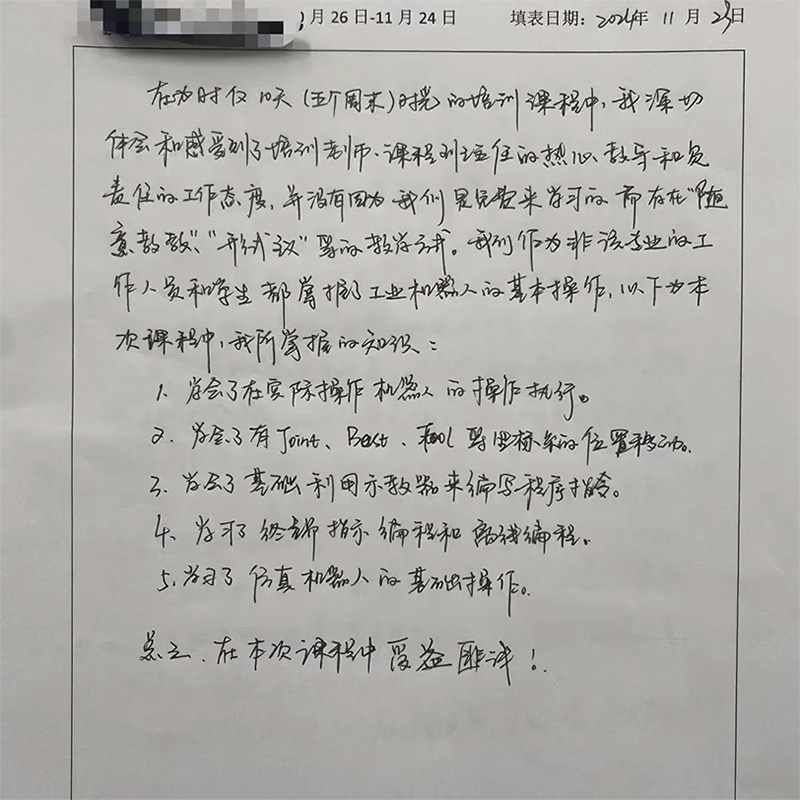 月26日-11月24日 填表日期：2024年 11 月 23日
在为时仅10天（五个周末）时光的培训课程中，我深切
体会和感受到了培训老师、课程班主任的热心教导和负
责任的工作态度，并没有因为我们是免费来学习的而存在“随
意教教”、“形式议”等的教学方式。我们作为非该专业的工
作人员和学生都掌握了工业机器人的基本操作，以下为本
次课程中，我所掌握的知识：
1、学会了在实际操作机器人的操作执行。
2、学会了有Joint、Best、Tool等坐标系的位置移动。
3、学会了基础利用示教器来编写程序指令。
4、学习了终端指示编程和离线编程。
5、学习了仿真机器人的基础操作。
总之、在本次课程中受益匪浅！